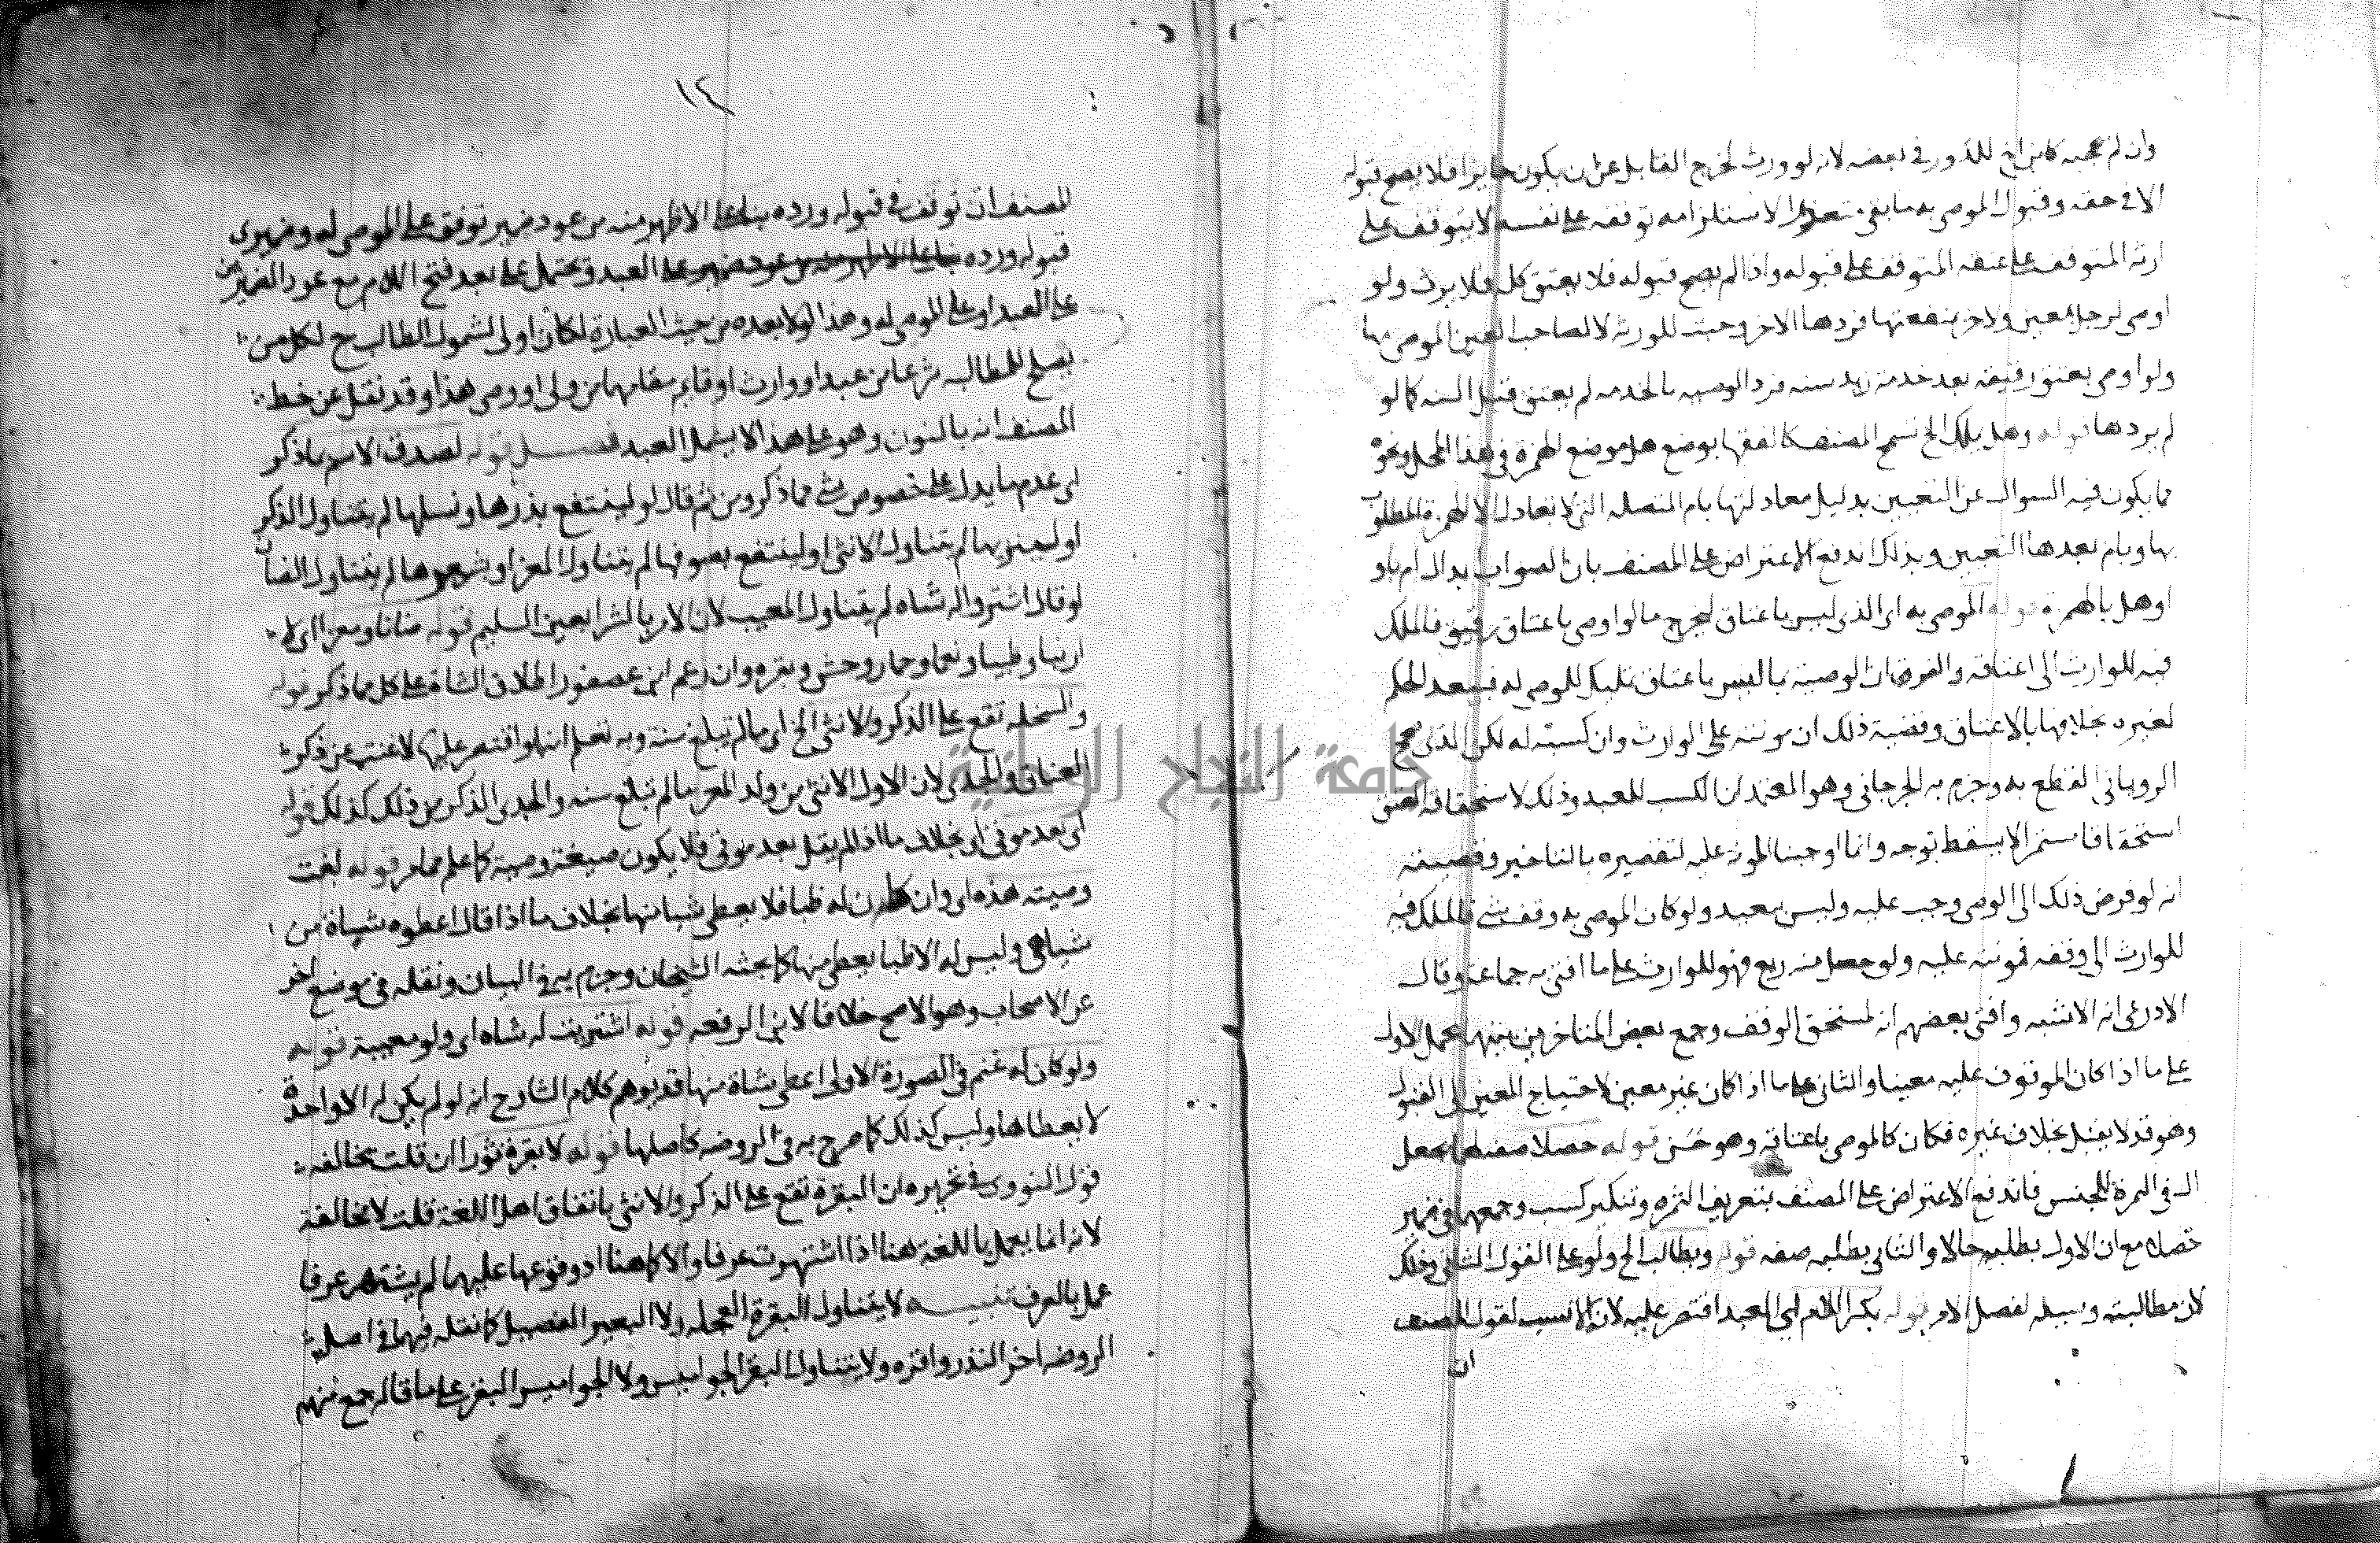 وان لم يحجبه كابن ابن للدور في بعضه لانه لو ورث لخرج القابل عن ان يكون حايزا فلا يصح قبوله
الا في حقه وقبول الموصي به مما بقي متعذر الاستلزامه توقفه على نفسه لا يتوقف على
ارثه المتوقف على عتقه المتوقف على قبوله واذا لم يصح قبوله فلا يعتق كل فلا يرث ولو
اوصي لرجل بمعين ولاخر بمنفعتها فردها الاخر رجعت للورثه لا لصاحب العين الموصي بها
ولو اوصي بعتق رقيقه بعد خدمة زيد سنه فرد الوصيه بالخدمه لم يعتق قبل السنه كما لو
لم يردها قوله وهل يلك الخ تسمح المصنف كالفقها بوضع هل موضع الهمزة في هذا المحل ونحوه
مما يكون فيه السوال عن التعيين بدليل معادلتها بام المتصله التي لا تعادل الا الهمزة المطلوب
بها وبام بعدها التعيين وبذلك اندفع الاعتراض على المصنف بان الصواب ابدال ام باو
او هل بالهمزه قوله الموصي به اي الذي ليس باعتاق ليخرج ما لو اوصي باعتاق رقيق فالملك
فيه للوارث الى اعتاقه والفرض ان الوصية بما ليس باعتاق تمليك للموصي له فيبعد الحكم
لغيره بخلافها بالاعتاق وقضية ذلك ان مونته على الوارث وان كسبته له لكن الذي صحح
الروياني القطع به وجزم به الجرجاني وهو المعتمد ان الكسب للعبد وذلك لاستحقاقه العتق
استحقاقا مستمرا لا يسقط بوجه وانما اوجبنا المونه عليه لتقصيره بالتاخير وقضيته
انه لو فرض ذلك الى الوصي وجب عليه وليس ببعيد ولو كان الموصي به وقف شي فالملك فيه
للوارث الى وقفه فمونته عليه ولو حصل منه ريع فهو للوارث على ما افتي به جماعة وقال
الاذرعي انه الاشبه وافتي بعضهم انه لمستحق الوقف وجمع بعض المتاخرين بينهما بحمل الاول
على ما اذا كان الموقوف عليه معينا والثاني على ما اذا كان غير معين لاحتياج المعين الى القبول
وهو قد لا يقبل بخلاف غيره فكان كالموصي باعتاقه وهو حسن قوله حصلا صفتها بجعل
ال في الثمرة للجنس فاندفع الاعتراض على المصنف بتعريف الثمره وتنكير كسب وجمعهما في ضمير
حصلا مع ان الاول يطلبه حالا والثاني يطلبه صفه قوله ويطالب الخ ولو على القول الثاني وذلك
لان مطالبته وسيله لفصل الامر قوله بكسر اللام اي العبد اقتصر عليه لانه الانسب لقول المصنف
ان
١٢
المصنف ان توقف في قبوله ورده بنا على الاظهر منه من عود ضمير توقف على الموصي له وضميري
قبوله ورده على العبد وتحتمل على بعد فتح اللام مع عود الضميرين
على العبد او على الموصي له وهذا لولا بعده من حيث العبارة لكان اولى لشمول الطالب ح لكل من
يصلح للمطالبه شرعا من عبد او وارث او قايم مقامهما من ولي او وصي هذا وقد نقل عن خط
المصنف انه بالنون وهو على هذا لا يشمل العبد فصل قوله لصدق الاسم بما ذكر
اى عدم ما يدل على خصوص شي مما ذكر ومن ثم قال لو لينتفع بدرها ونسلها لم يتناول الذكر
او لينزيها لم يتناول الانثى او لينتفع بصوفها لم يتناول المعز او بشعرها لم يتناول الضان
لو قال اشتروا له شاه لم يتناول المعيب لان الامر بالشرا بعين السليم قوله ضانا ومعزا اى لا
ارنبا وظبيا ونعاما وحمار وحش وبقره وان زعم ابن عصفور اطلاق الشاة على كل مما ذكر قوله
والسخله تقع على الذكر والانثى الخ اى ما لم تبلغ سنة وبه تعلم انه لو اقتصر عليها لاغنت عن ذكر
العناق والجدي لان الاول الانثى من ولد المعز ما لم تبلغ سنه والجدي الذكر من ذلك كذلك قوله
اى بعد موتي اى بخلاف ما اذا لم يقل بعد موتي فلا يكون صيغة وصية كما علم مما مر قوله لغت
وصيته هذه اى وان كان له ظبا فلا يعطى شيا منها بخلاف ما اذا قال اعطوه شياة من
شياهي وليس له الا ظبا يعطى منها كما بحثه الشيخان وجزم به في البيان ونقله في موضع اخر
عن الاصحاب وهو الاصح خلافا لابن الرفعه قوله اشتريت له شاه اى ولو معيبة قوله
ولو كان له غنم في الصورة الاولى اعطى شاة منها قد يوهم كلام الشارح انه لو لم يكن له الا واحدة
لا يعطاها وليس كذلك كما صرح به في الروضه كاصلها قوله لا بقرة ثورا ان قلت يخالفه
قول النووي في تحريره ان البقرة تقع على الذكر والانثى باتفاق اهل اللغة قلت لا مخالفة
لانه انما يعمل باللغة هنا اذا اشتهرت عرفا والا كما هنا اذ وقوعها عليهما لم يشتهر عرفا
عمل بالعرف تنبيه لا يتناول البقرة العجله ولا البعير الفصيل كما نقله فيهما في اصل
الروضه اخر النذر واقره ولا يتناول البقر الجواميس ولا الجواميس البقر على ما قاله جمع منهم